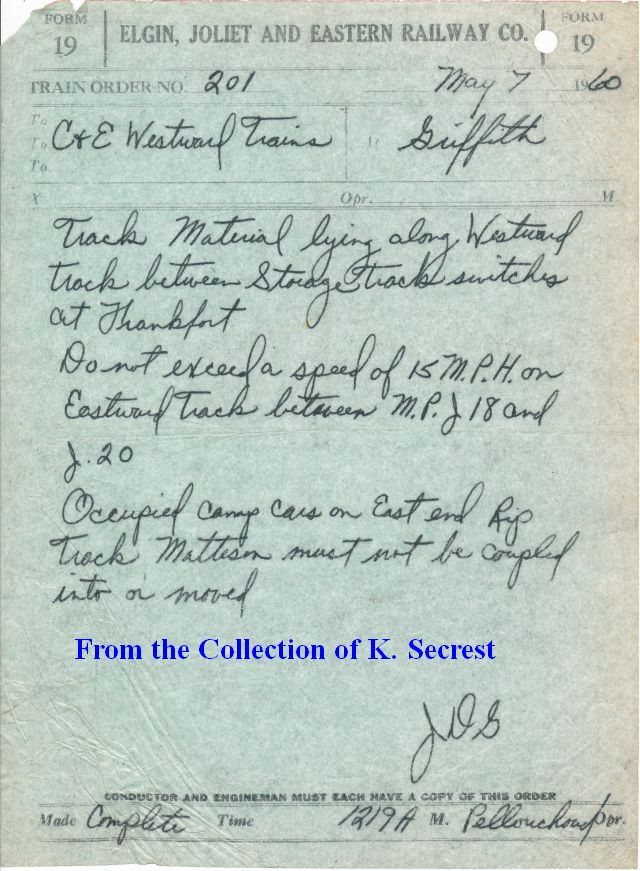 FORM 19 ELGIN, JOLIET AND EASTERN RAILWAY CO. FORM 19
TRAIN ORDER NO. 201 May 7 1960
To
To C&E Westward Trains At Griffith
To
X Opr. M
Track Material lying along Westward
track between Storage track switches
at Frankfort
Do not exceed a speed of 15 M.P.H. on
Eastward Track between M.P. J 18 and
J. 20
Occupied camp cars on East end Rip
Track Matteson must not be coupled
into or moved
From the Collection of K. Secrest
JDG
CONDUCTOR AND ENGINEMAN MUST EACH HAVE A COPY OF THIS ORDER
Made Complete Time 1219A M. Opr.